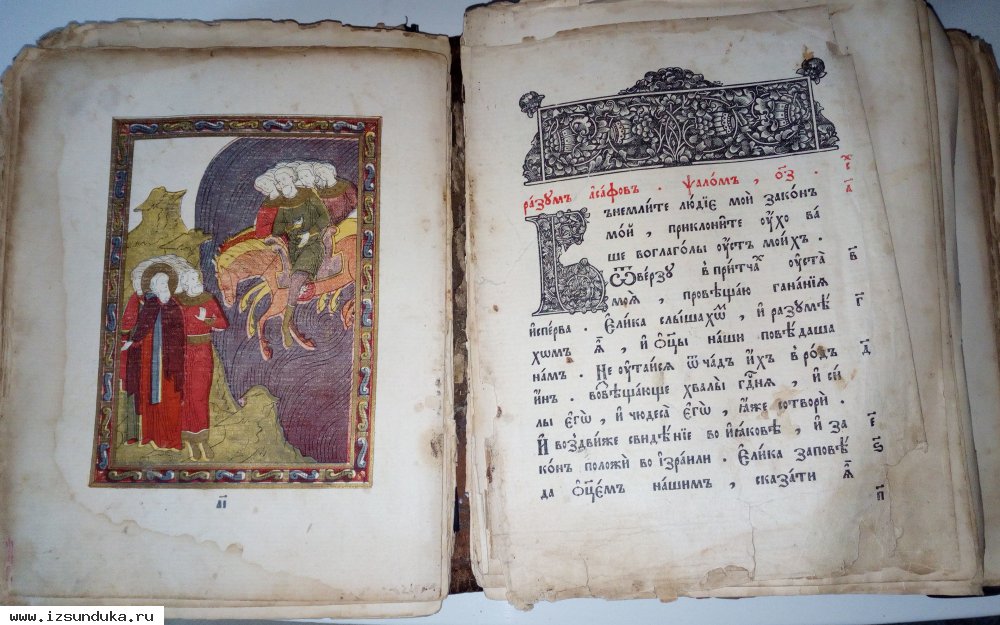 а҃і
разумъ а҆са́фовъ . ѱало́мъ , о҃з .
Вънемли́те лю́дїе мои̑ зако́нъ
мо́й , приклони́те ᲂу҆́хо ва́
ше воглаго́лы ᲂу҆́стъ мои́хъ .
Ѿве́рзу в при́тчахъ ᲂу҆ста̀
моѧ̀ , провѣща́ю гана́нїѧ
и҆спе́рва . Е҆ли́ка слы́шахѡм , и҆ разумѣ́
хомъ ѧ҆̀ , и҆ ѻ҆тцы̀ на́ши повѣ́даша
на́мъ . Не ᲂу҆таи́сѧ ѿ ча́дъ и҆́хъ в ро́дъ
и҆́нъ . вовѣща́юще хвалы̀ гдⷭ҇нѧ , и҆ си́
лы є҆гѡ̀ , и҆ чюдеса̀ є҆гѡ̀ , ꙗ҆́же сотворѝ .
И҆ воздви́же свидѣ́нїе во и҆са́ковѣ , и҆ за
ко́нъ положѝ во і҆зра́или . Е҆ли́ка заповѣ́
да ѻ҆тце́мъ на́шимъ , сказа́ти ѧ҆̀
а҃
в҃
г҃
д҃
е҃
ѕ҃
п҃
www.izsunduka.ru